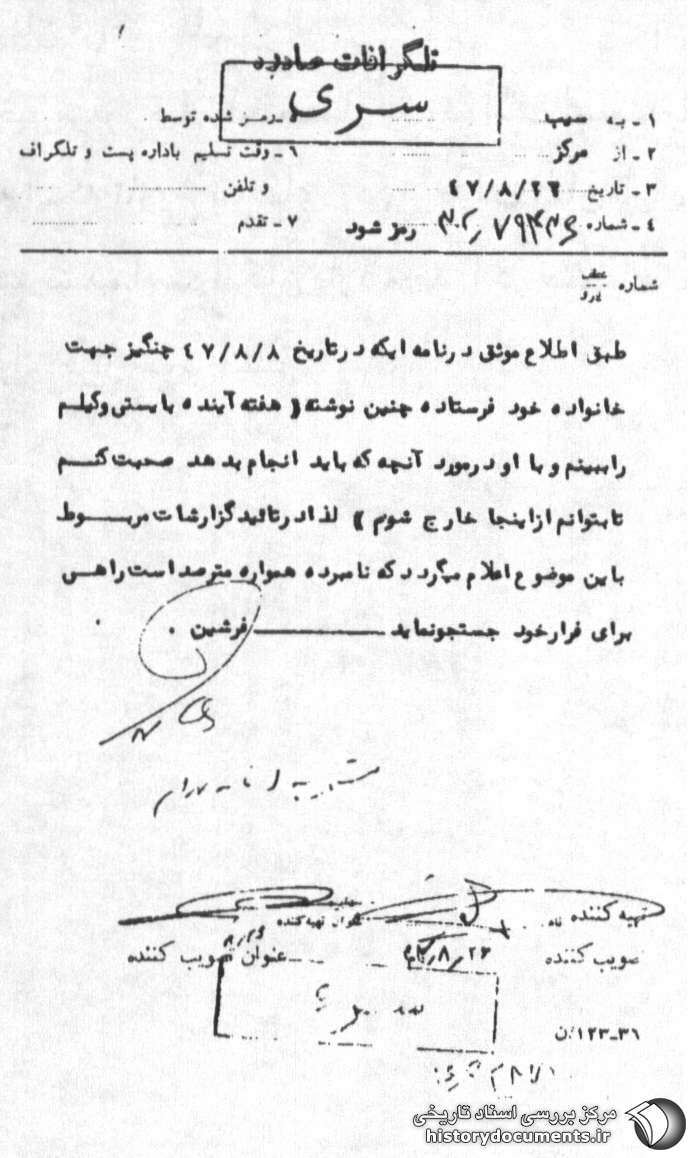 تلگرافات صادره
سری
۱ ـ به سیب
۲ ـ از مرکز
۳ ـ تاریخ ۴۷/۸/۲۶
۴ ـ شماره رمز شود
۵ ـ رمز شده توسط
۶ ـ وقت تسلیم باداره پست و تلگراف
و تلفن
۷ ـ تقدم
شماره عطف
پیرو
طبق اطلاع موثق درنامه ایکه درتاریخ ۴۷/۸/۸ چنگیز جهت
خانواده خود فرستاده چنین نوشته ( هفته آینده بایستی وکیلم
راببینم و با او درمورد آنچه که باید انجام بدهد صحبت کنم
تابتوانم ازاینجا خارج شوم ) لذا درتائید گزارشات مربوط
باین موضوع اعلام میگردد که نامبرده همواره مترصد است راهی
برای فرارخود جستجونماید ــــــ فرشین .
تهیه کننده
عنوان تهیه کننده
تصویب کننده ۲۶/۸/
عنوان تصویب کننده
سری
۳۱-۱۲۳/ن
مرکز بررسی اسناد تاریخی
historydocuments.ir